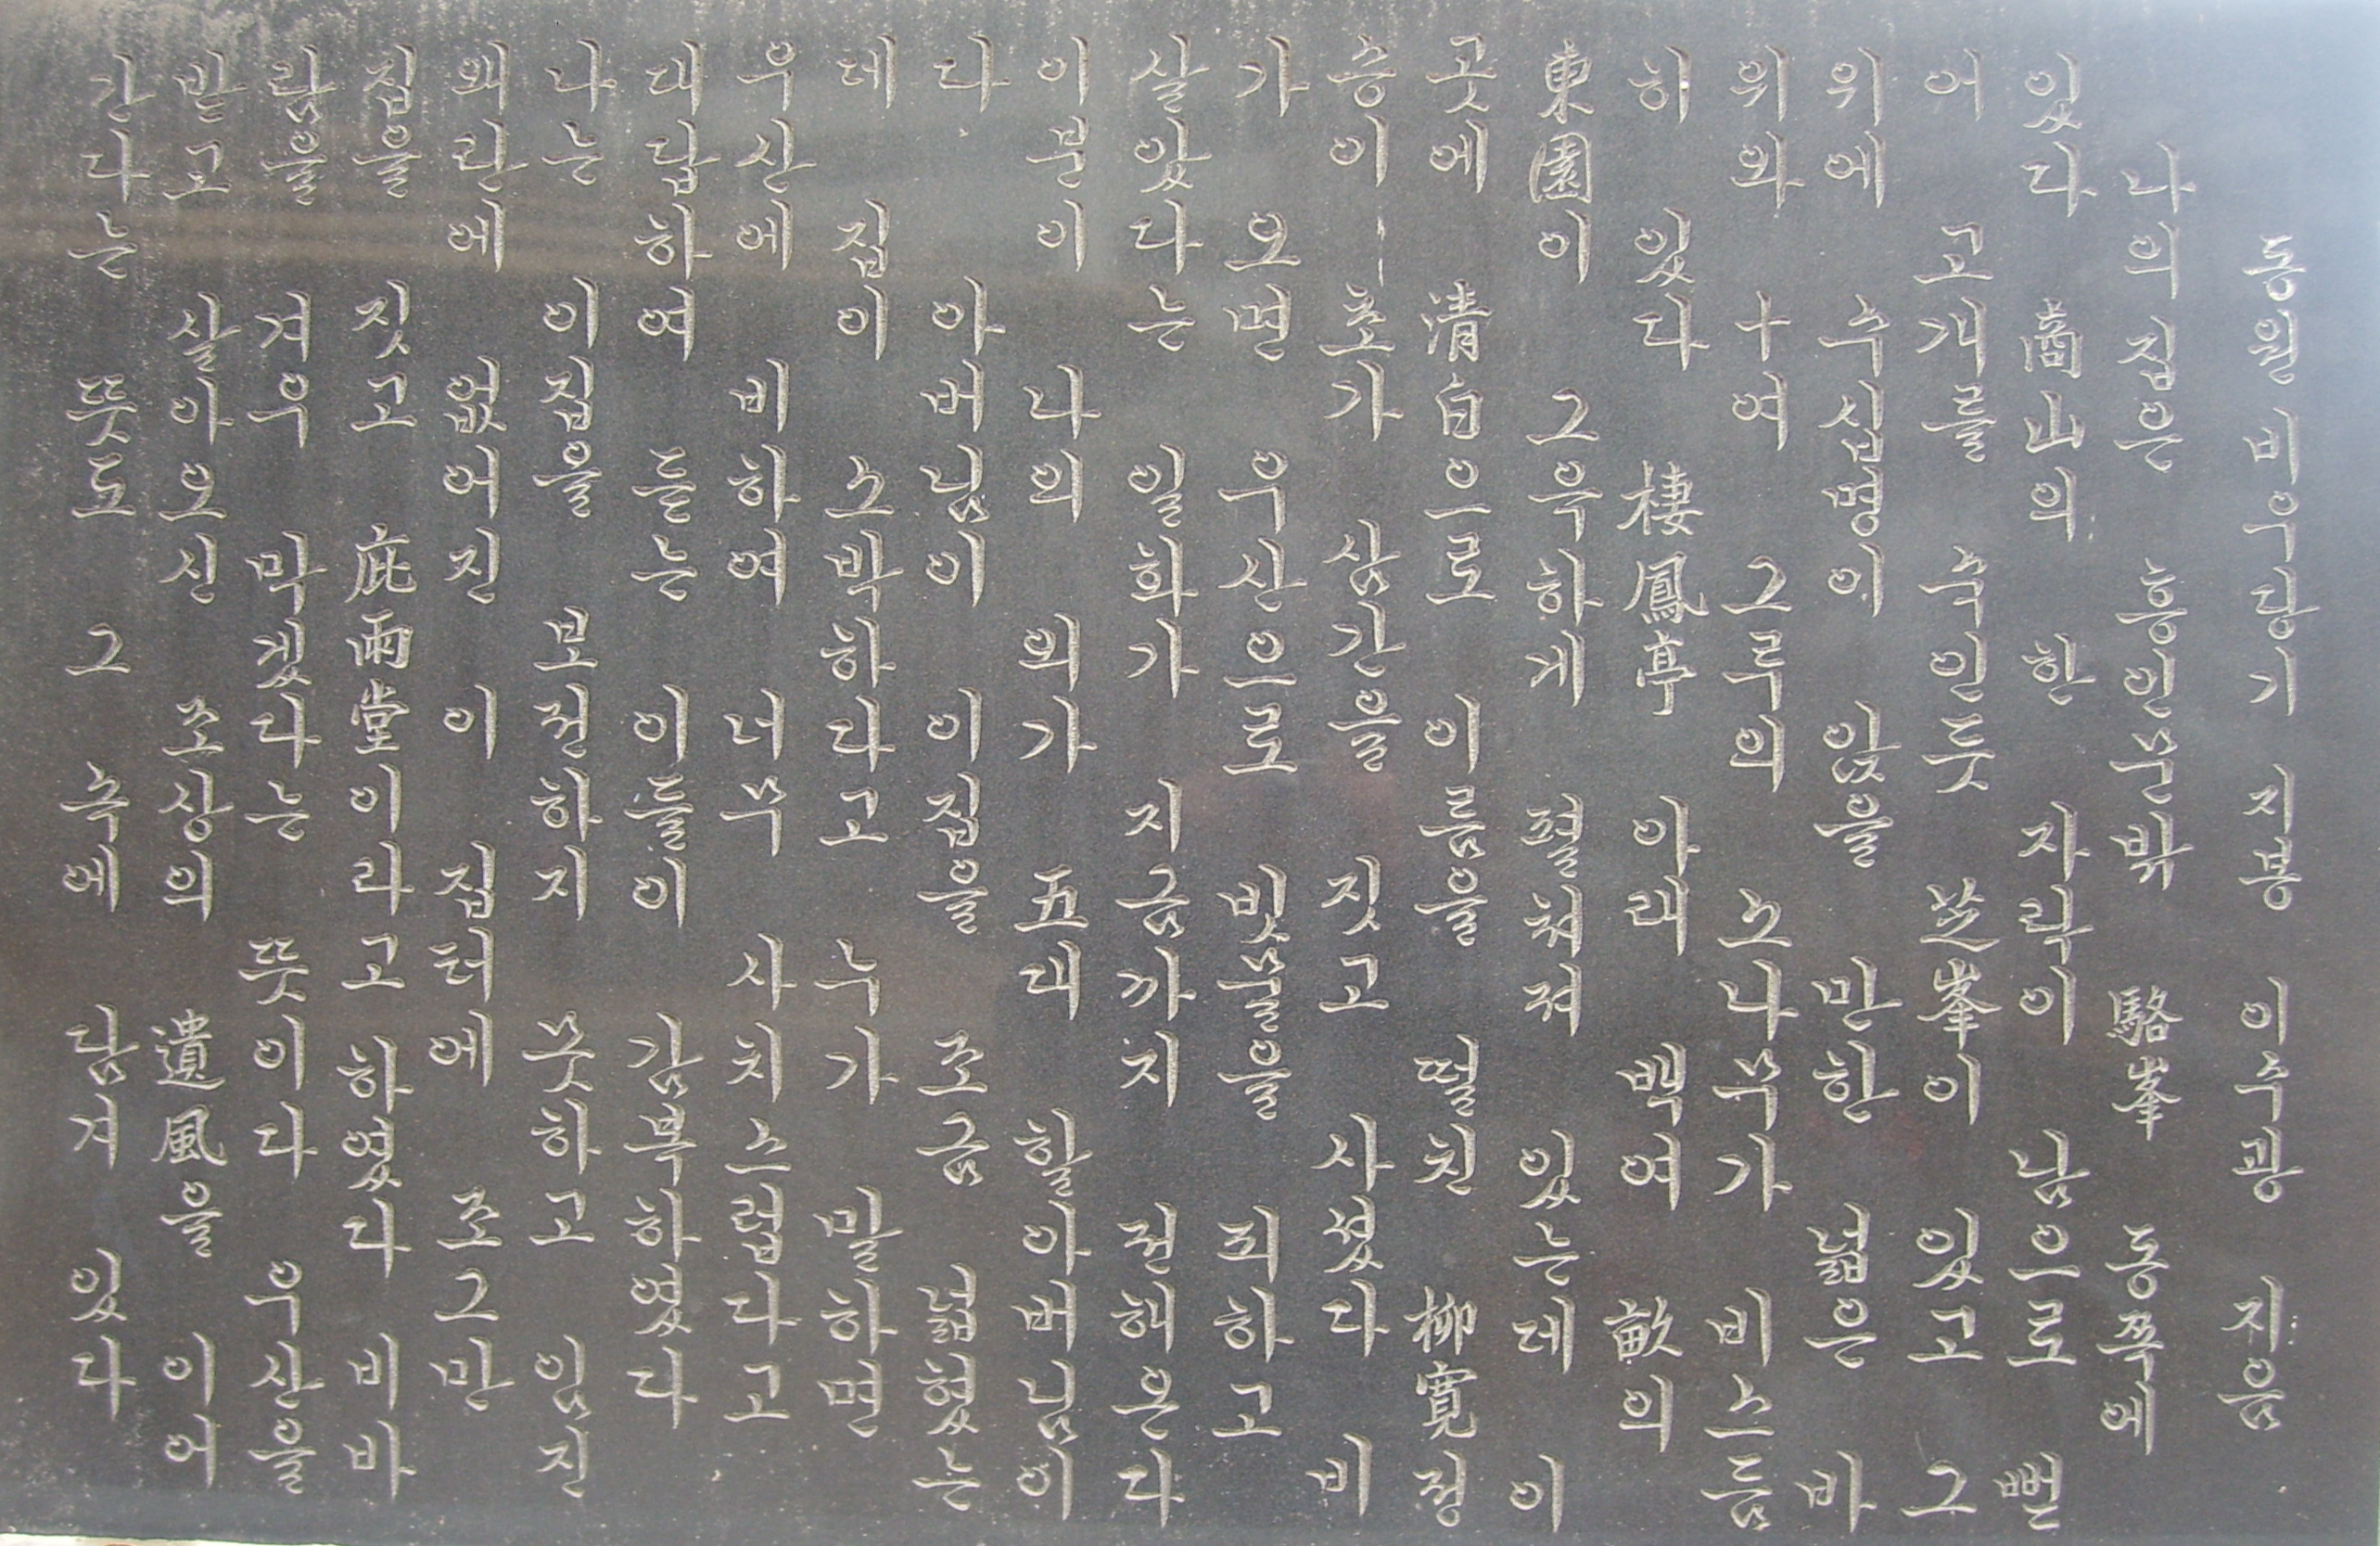 동원 비우당기 지봉 이수광 지음
나의 집은 흥인문밖 駱峯 동쪽에
있다 商山의 한 자락이 남으로 뻗
어 고개를 숙인듯 芝峯이 있고 그
위에 수십명이 앉을 만한 넓은 바
위와 十여 그루의 소나무가 비스듬
히 있다 棲鳳亭 아래 백여 畝의
東園이 그윽하게 펼쳐져 있는데 이
곳에 淸白으로 이름을 떨친 柳寬정
승이 초가 삼간을 짓고 사셨다 비
가 오면 우산으로 빗물을 피하고
살았다는 일화가 지금까지 전해온다
이분이 나의 외가 五대 할아버님이
다 아버님이 이집을 조금 넓혔는
데 집이 소박하다고 누가 말하면
우산에 비하여 너무 사치스럽다고
대답하여 듣는 이들이 감복하였다
나는 이집을 보전하지 못하고 임진
왜란에 없어진 이 집터에 조그만
집을 짓고 庇雨堂이라고 하였다 비바
람을 겨우 막겠다는 뜻이다 우산을
받고 살아오신 조상의 遺風을 이어
간다는 뜻도 그 속에 담겨 있다